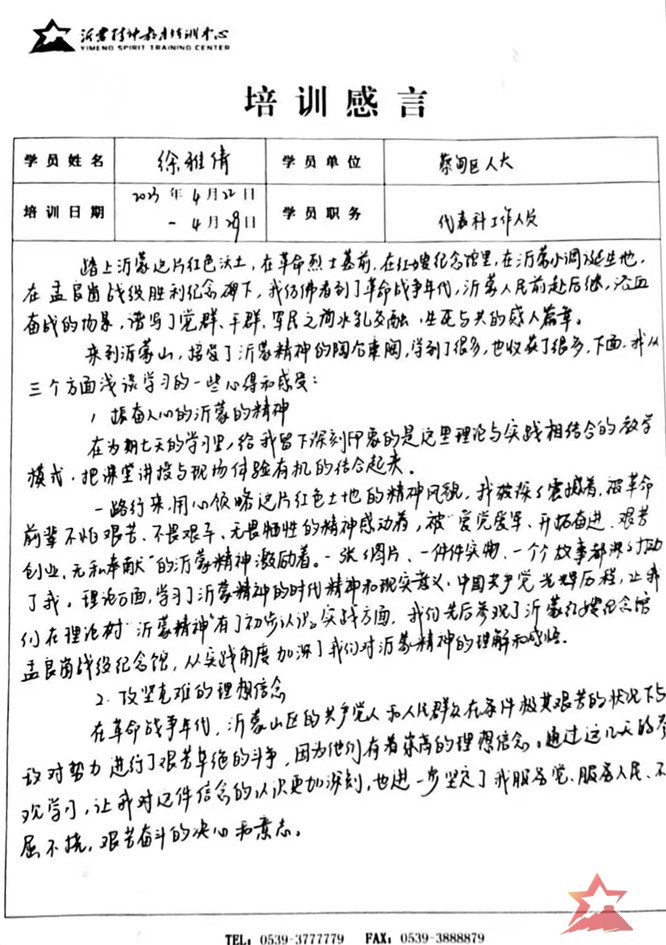 沂蒙精神教育培训中心
YIMENG SPIRIT TRAINING CENTER
培训感言
学员姓名 徐雅倩 学员单位 蔡甸区人大
培训日期 2023年4月22日 - 4月28日 学员职务 代表科工作人员
踏上沂蒙这片红色沃土，在革命烈士墓前，在红嫂纪念馆里，在沂蒙小调诞生地，
在孟良崮战役胜利纪念碑下，我仿佛看到了革命战争年代，沂蒙人民前赴后继，浴血
奋战的场景，谱写了党群、干群、军民之间水乳交融、生死与共的感人篇章。
来到沂蒙山，接受了沂蒙精神的陶冶熏陶，学到了很多，也收获了很多，下面，我从
三个方面浅谈学习的一些心得和感受：
1、振奋人心的沂蒙的精神
在为期七天的学习里，给我留下深刻印象的是这里理论与实践相结合的教学
模式，把课堂讲授与现场体验有机的结合起来。
一路行来，用心领略这片红色土地的精神风貌，我被深深震撼着，被革命
前辈不怕艰苦、不畏艰辛、无畏牺牲的精神感动着，被"爱党爱军、开拓奋进、艰苦
创业、无私奉献"的沂蒙精神激励着。一张张图片、一件件实物、一个个故事都深深打动
了我。理论方面，学习了沂蒙精神的时代精神和现实意义，中国共产党光辉历程，让我
们在理论对"沂蒙精神"有了初步认识。实战方面，我们先后参观了沂蒙红嫂纪念馆
孟良崮战役纪念馆，从实践角度加深了我们对沂蒙精神的理解和感悟。
2、攻坚克难的理想信念
在革命战争年代，沂蒙山区的共产党人和人民群众在条件极其艰苦的状况下与
敌对势力进行了艰苦卓绝的斗争，因为他们有着崇高的理想信念。通过这几天的参
观学习，让我对这件信念的认识更加深刻，也进一步坚定了我服务党、服务人民、不
屈不挠，艰苦奋斗的决心和意志。
TEL: 0539-3777779 FAX: 0539-3888879